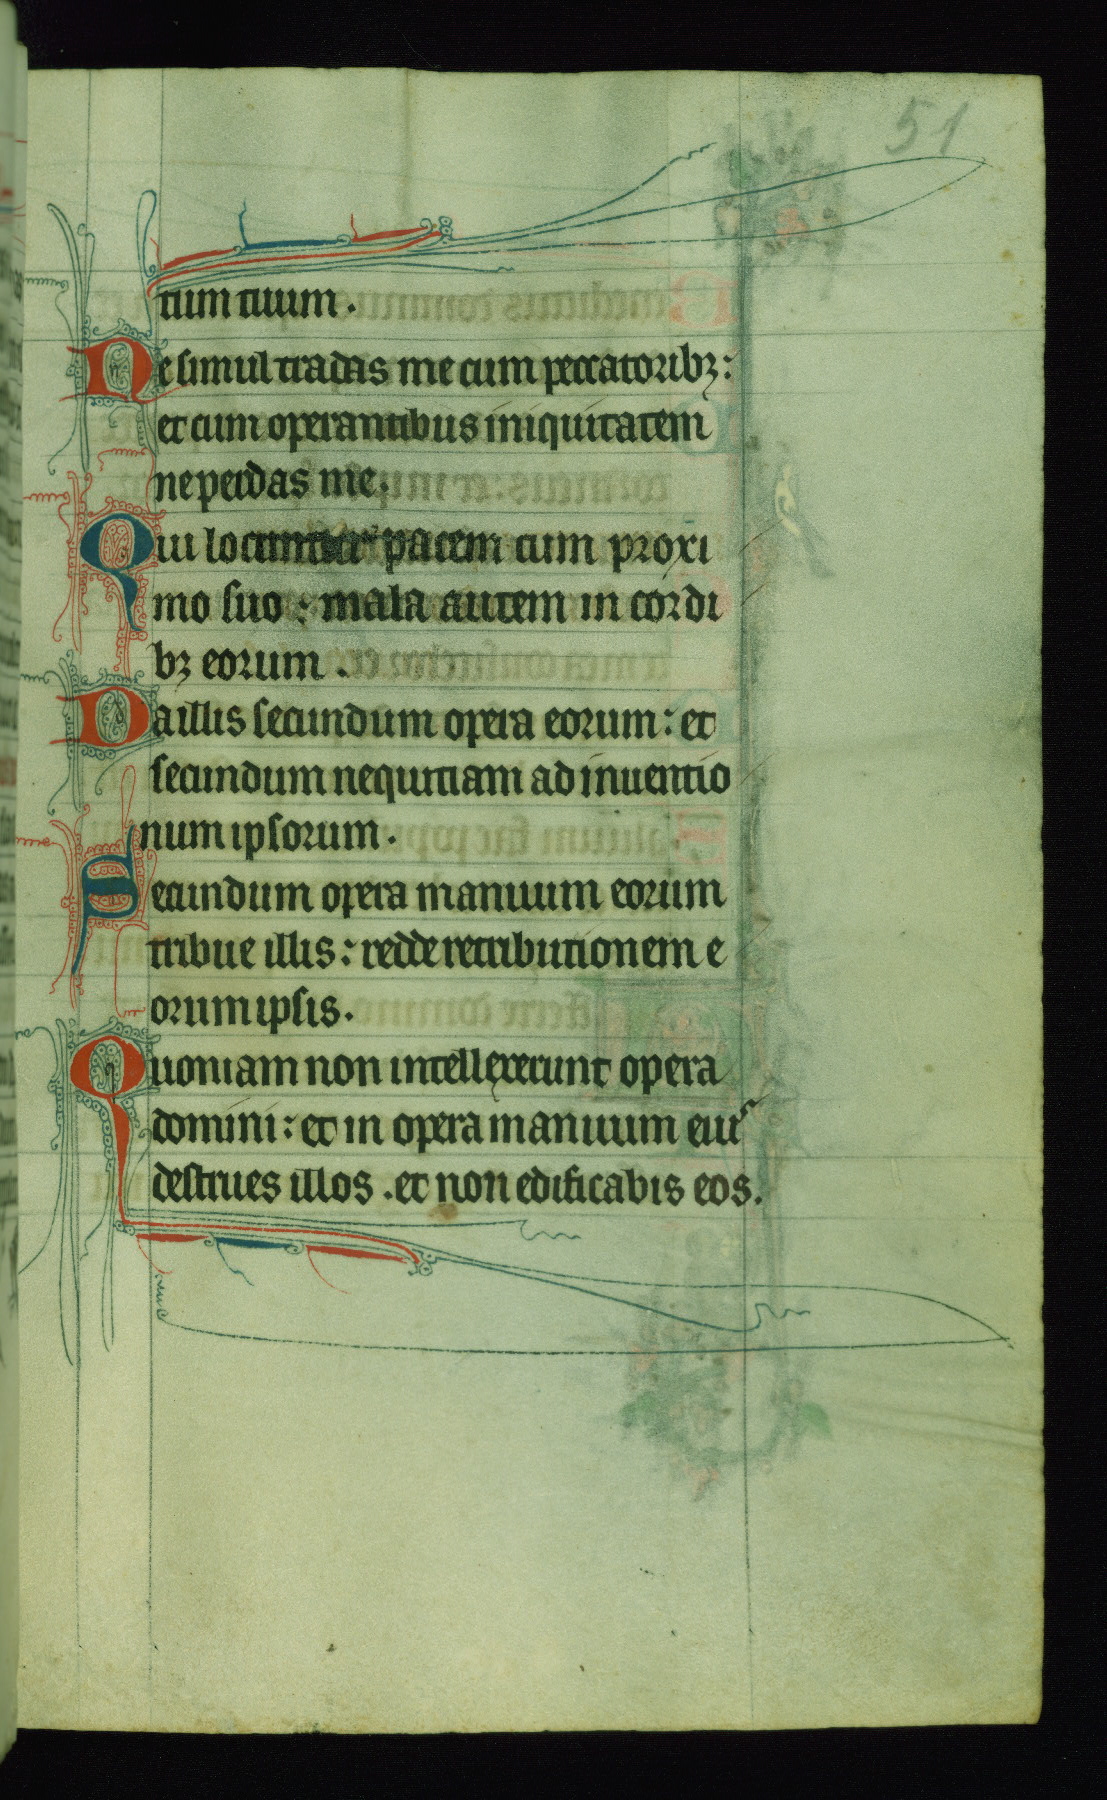 51
tum tuum.
Ne simul tradas me cum peccatoribꝫ:
et cum operantibus iniquitatem
ne perdas me.
Qui locuntur pacem cum proxi
mo suo: mala autem in cordi
bꝫ eorum.
Da illis secundum opera eorum: et
secundum nequitiam ad inuentio
num ipsorum.
Secundum opera manuum eorum
tribue illis: redde retributionem e
orum ipsis.
Quoniam non intellexerunt opera
domini: et in opera manuum eiꝰ
destrues illos. et non edificabis eos.